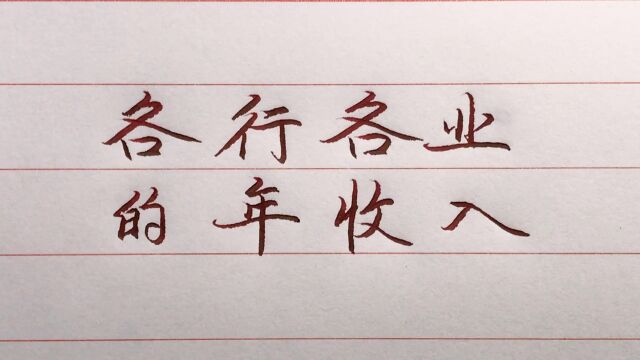 各行各业
的年收入